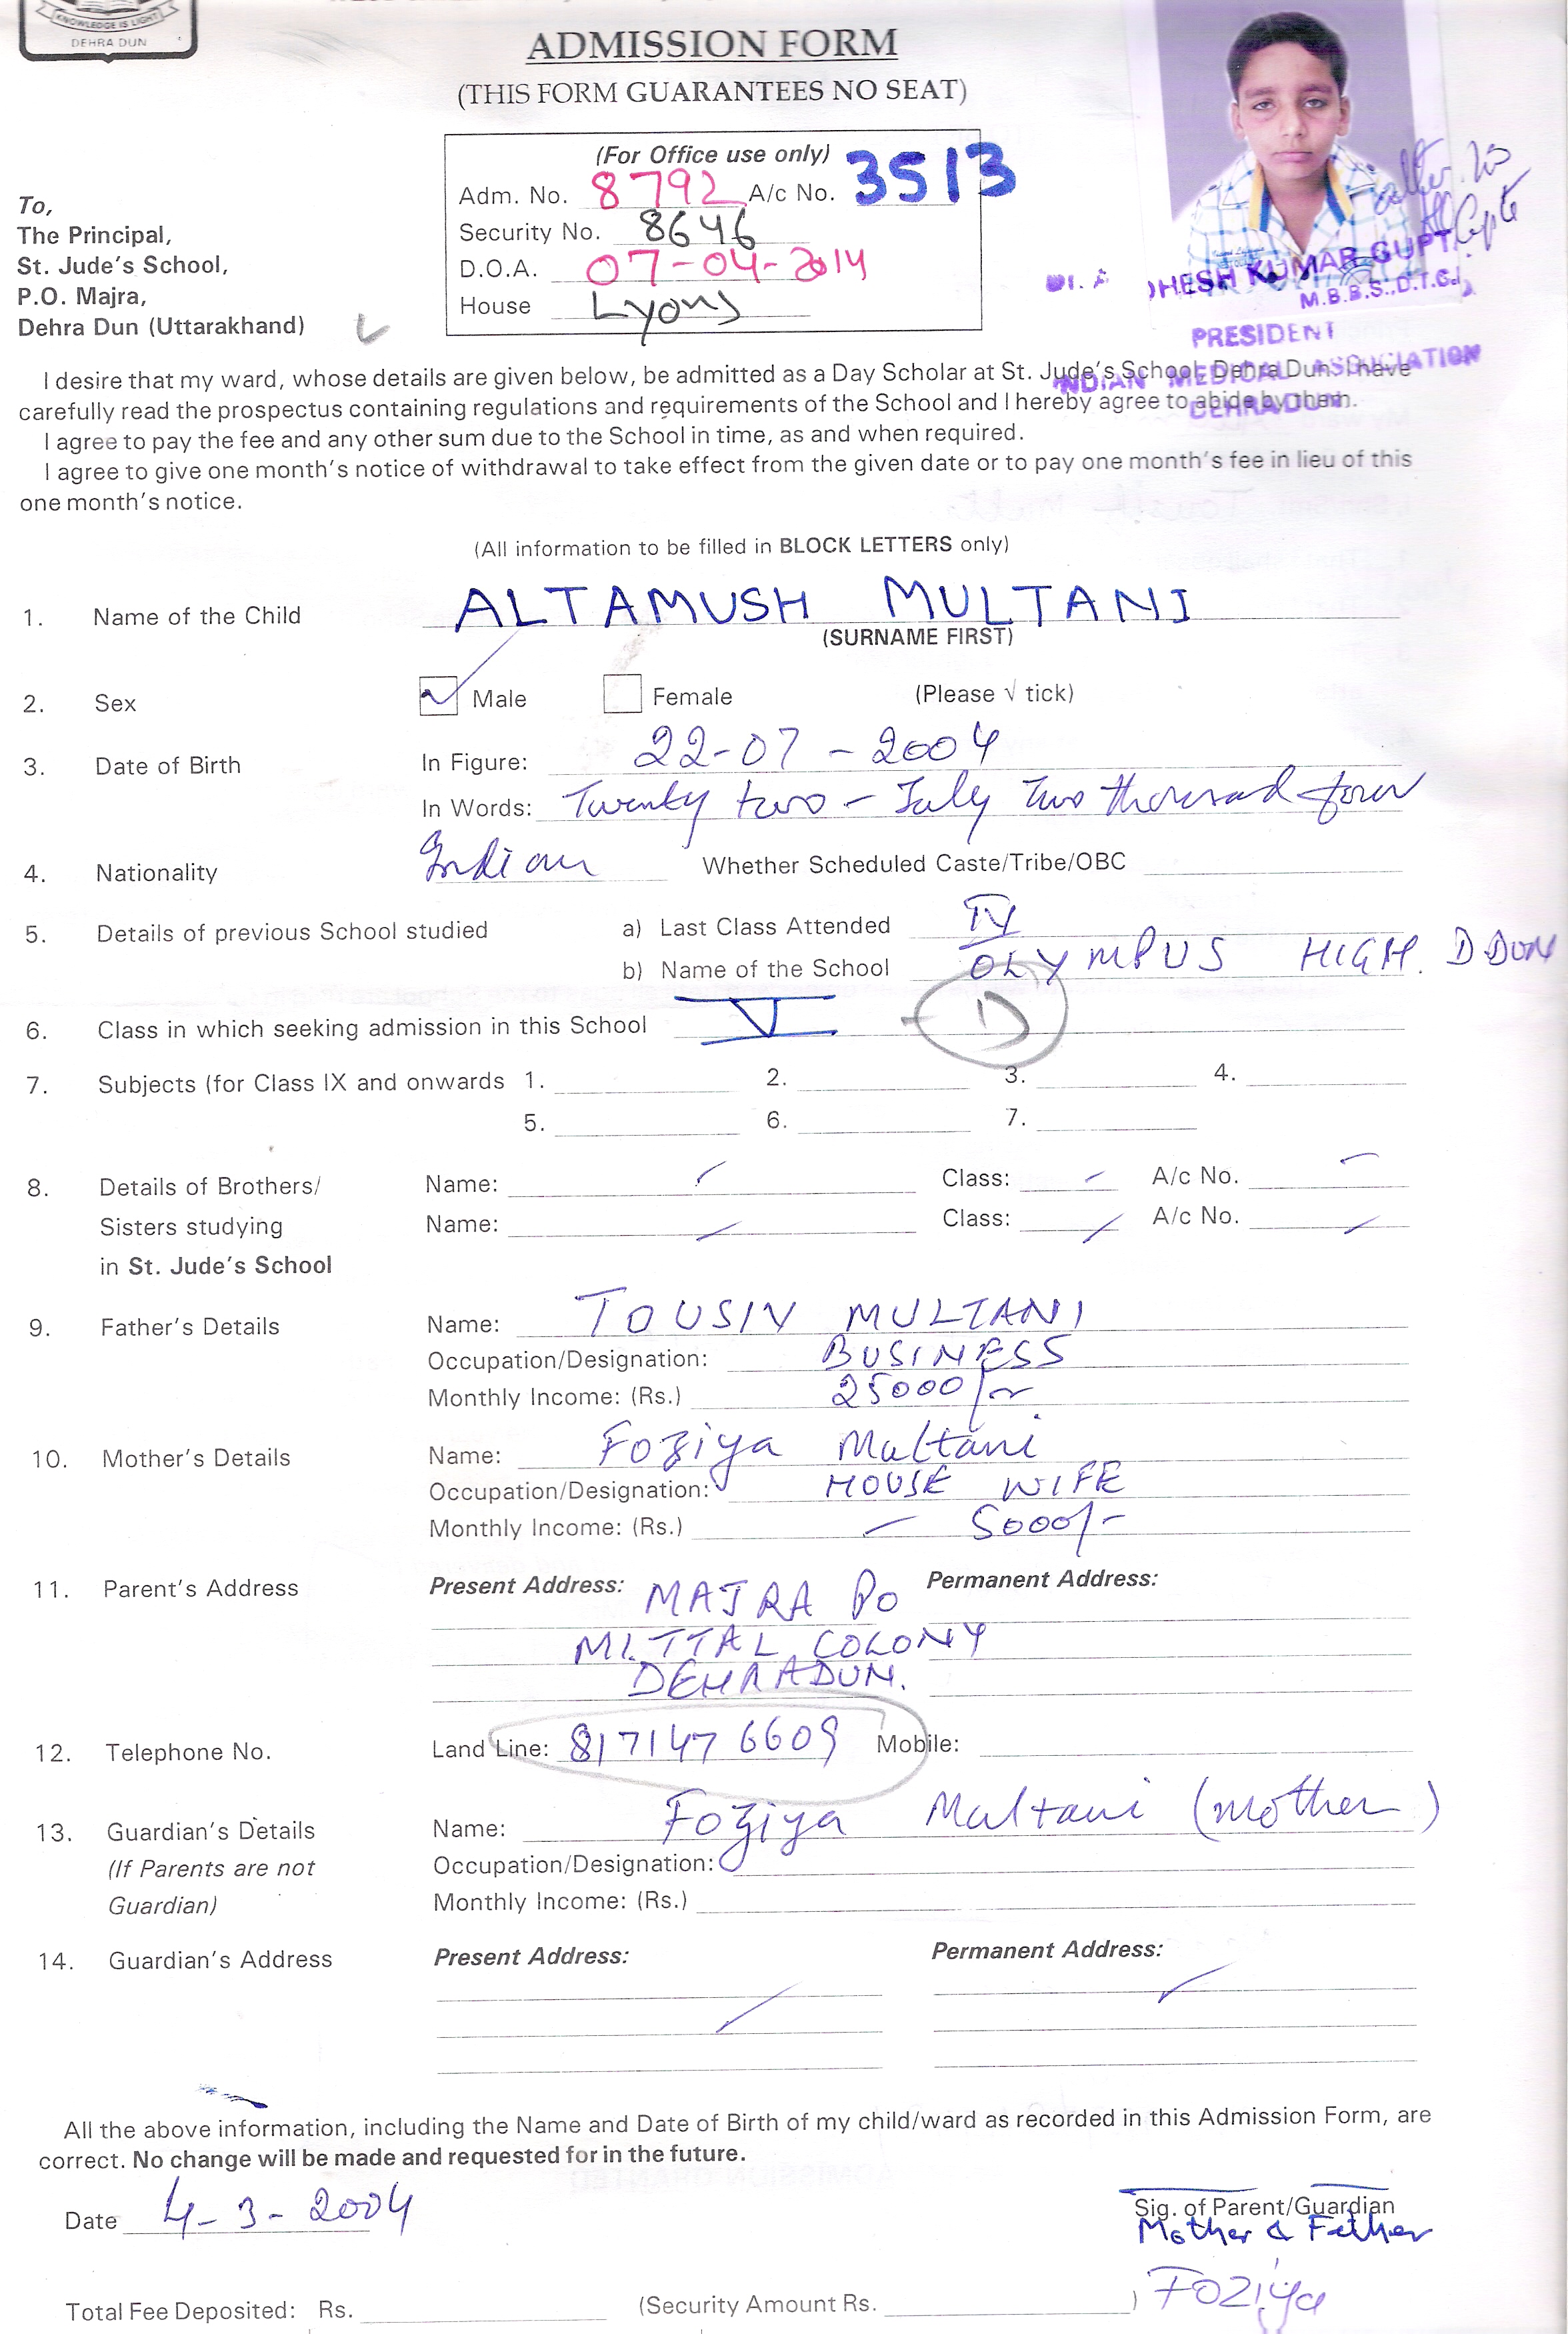 KNOWLEDGE IS LIGHT
DEHRA DUN
ADMISSION FORM
(THIS FORM GUARANTEES NO SEAT)
(For Office use only)
Adm. No. 8792 A/c No. 3513
Security No. 8646
D.O.A. 07-04-2014
House Lyons
To,
The Principal,
St. Jude's School,
P.O. Majra,
Dehra Dun (Uttarakhand)
HESH KUMAR GUPT
M.B.B.S.,D.T.C.D.
PRESIDENT
INDIAN MEDICAL ASSOCIATION
DEHRADUN
I desire that my ward, whose details are given below, be admitted as a Day Scholar at St. Jude's School, Dehra Dun. I have
carefully read the prospectus containing regulations and requirements of the School and I hereby agree to abide by them.
I agree to pay the fee and any other sum due to the School in time, as and when required.
I agree to give one month's notice of withdrawal to take effect from the given date or to pay one month's fee in lieu of this
one month's notice.
(All information to be filled in BLOCK LETTERS only)
1. Name of the Child ALTAMUSH MULTANI
(SURNAME FIRST)
2. Sex Male Female (Please √ tick)
3. Date of Birth In Figure: 22-07-2004
In Words: Twenty two - July Two thousand four
4. Nationality Indian Whether Scheduled Caste/Tribe/OBC
5. Details of previous School studied a) Last Class Attended IV
b) Name of the School OLYMPUS HIGH. D DUN
6. Class in which seeking admission in this School V - D
7. Subjects (for Class IX and onwards 1. 2. 3. 4.
5. 6. 7.
8. Details of Brothers/ Name: Class: A/c No.
Sisters studying Name: Class: A/c No.
in St. Jude's School
9. Father's Details Name: TOUSIV MULTANI
Occupation/Designation: BUSINESS
Monthly Income: (Rs.) 25000/-
10. Mother's Details Name: Foziya Multani
Occupation/Designation: HOUSE WIFE
Monthly Income: (Rs.) - 5000/-
11. Parent's Address Present Address: MAJRA PO Permanent Address:
MITTAL COLONY
DEHRADUN.
12. Telephone No. Land Line: 8171476609 Mobile:
13. Guardian's Details Name: Foziya Multani (mother)
(If Parents are not Occupation/Designation:
Guardian) Monthly Income: (Rs.)
14. Guardian's Address Present Address: Permanent Address:
All the above information, including the Name and Date of Birth of my child/ward as recorded in this Admission Form, are
correct. No change will be made and requested for in the future.
Date 4-3-2004 Sig. of Parent/Guardian
Mother & Father
Total Fee Deposited: Rs. (Security Amount Rs. ) Foziya